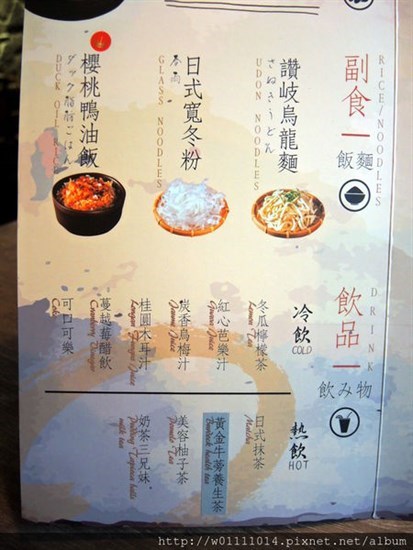 副食
飯麵
RICE/NOODLES
讃岐烏龍麵
さぬきうどん
UDON NOODLES
日式寬冬粉
春雨
GLASS NOODLES
櫻桃鴨油飯
DUCK OIL RICE
飲品
飲み物
DRINK
冷飲
COLD
冬瓜檸檬茶
紅心芭樂汁
Guava Juice
炭香烏梅汁
桂圓木耳汁
蔓越莓醋飲
Cranberry Vinegar
可口可樂
Cola
熱飲
HOT
日式抹茶
Matcha
黃金牛蒡養生茶
Burdock health tea
美容柚子茶
Pomelo Tea
奶茶三兄妹
http://w01111014.pixnet.net/album